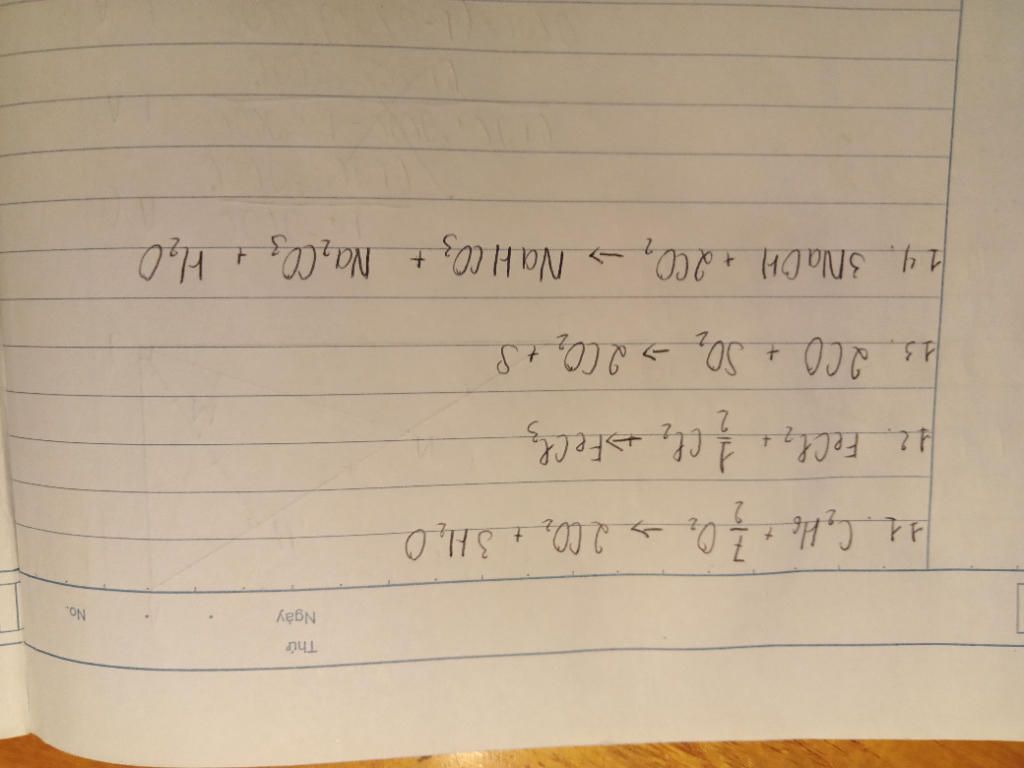 Thứ
Ngày No.
11. C₂H₆ + 7/2 O₂ → 2CO₂ + 3H₂O
12. FeCl₂ + 1/2 Cl₂ → FeCl₃
13. 2CO + SO₂ → 2CO₂ + S
14. 3NaOH + 2CO₂ → NaHCO₃ + Na₂CO₃ + H₂O